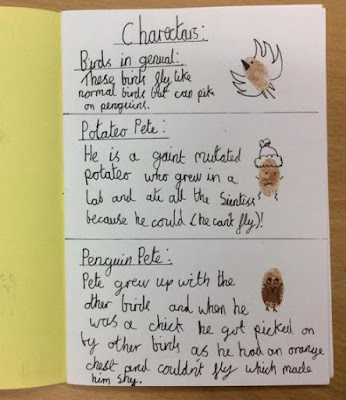 Charactars:
Birds in genual:
These birds fly like
normal birds but can pick
on penguins.
Potateo Pete:
He is a gaint mutated
potateo who grew in a
lab and ate all the Sientiss
because he could (he can't fly)!
Penguin Pete:
Pete grew up with the
other birds and when he
was a chick he got picked on
by other birds as he had an orange
chest and couldn't fly which made
him shy.